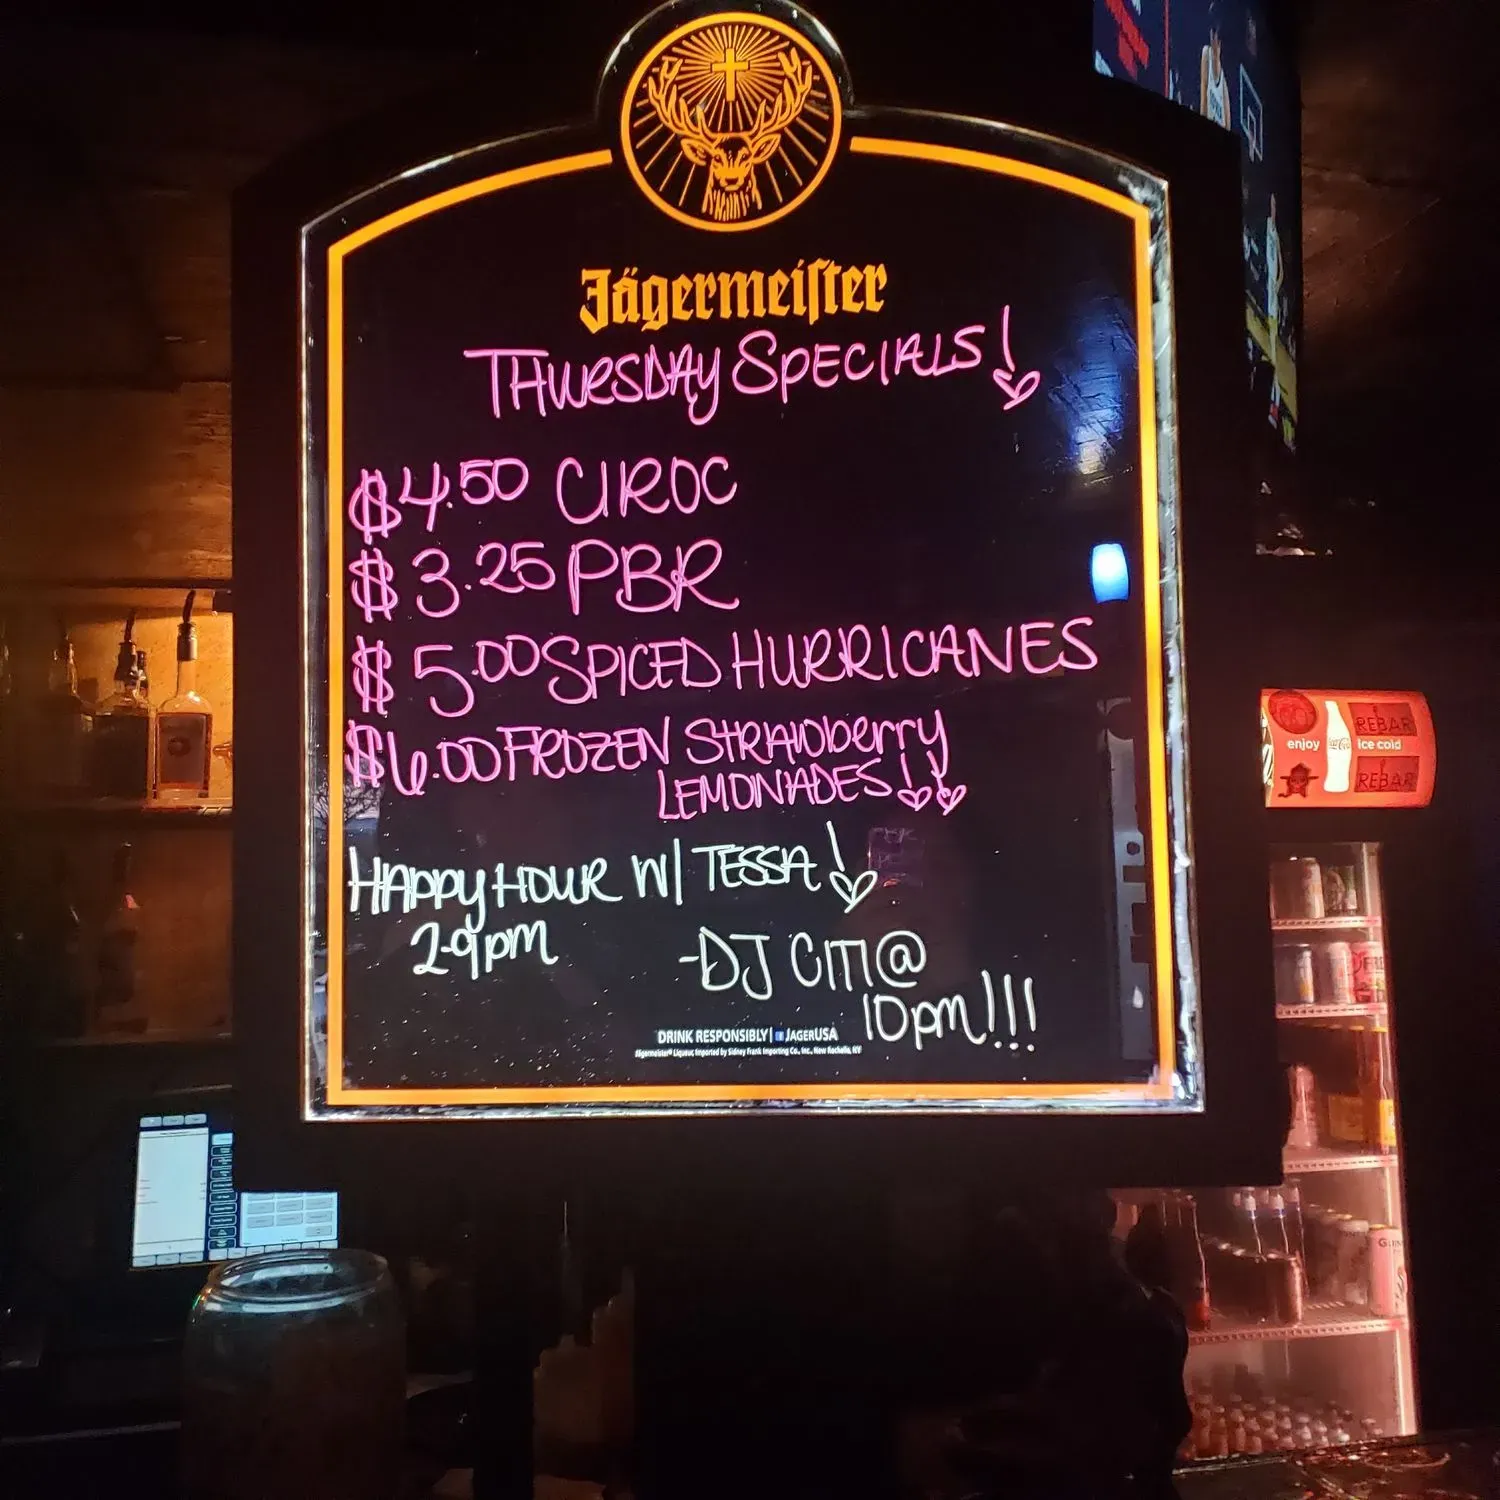 Jägermeister
THURSDAY SPECIALS!
$4.50 CIROC
$3.25 PBR
$5.00 SPICED HURRICANES
$6.00 FROZEN STRAWberry
LEMONADES!!
HAPPY HOUR W/ TESSA!
2-9pm
-DJ CITI @
10pm!!!
DRINK RESPONSIBLY | f JAGERUSA
Jägermeister® Liqueur, Imported by Sidney Frank Importing Co., Inc., New Rochelle, NY
REBAR
enjoy Coca-Cola ice cold
REBAR